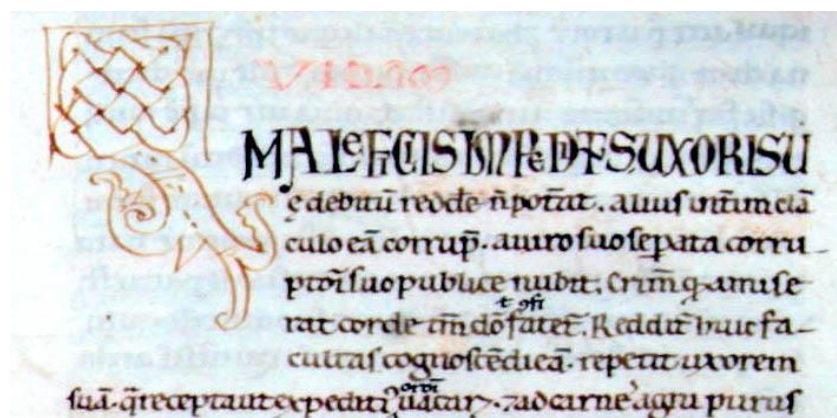 MALEFICIIS IMPEDIT̃ UXORI SU
ę debitū redde᷑ n̄ poterat. alius interim clā
culo eā corrup̄. a uiro suo sep̄ata corru
ptori suo publice nubit. Crim̄ q̄ amise
ł ɔfi
rat corde tm̄ dō fatet᷑. Reddit᷑ huic fa-
cultas cognoscēdi eā. repetit uxorem
oroī
suā. q̄ recepta ut expediti᷒ uacar&. ⁊ ad carne᷒ agni purus